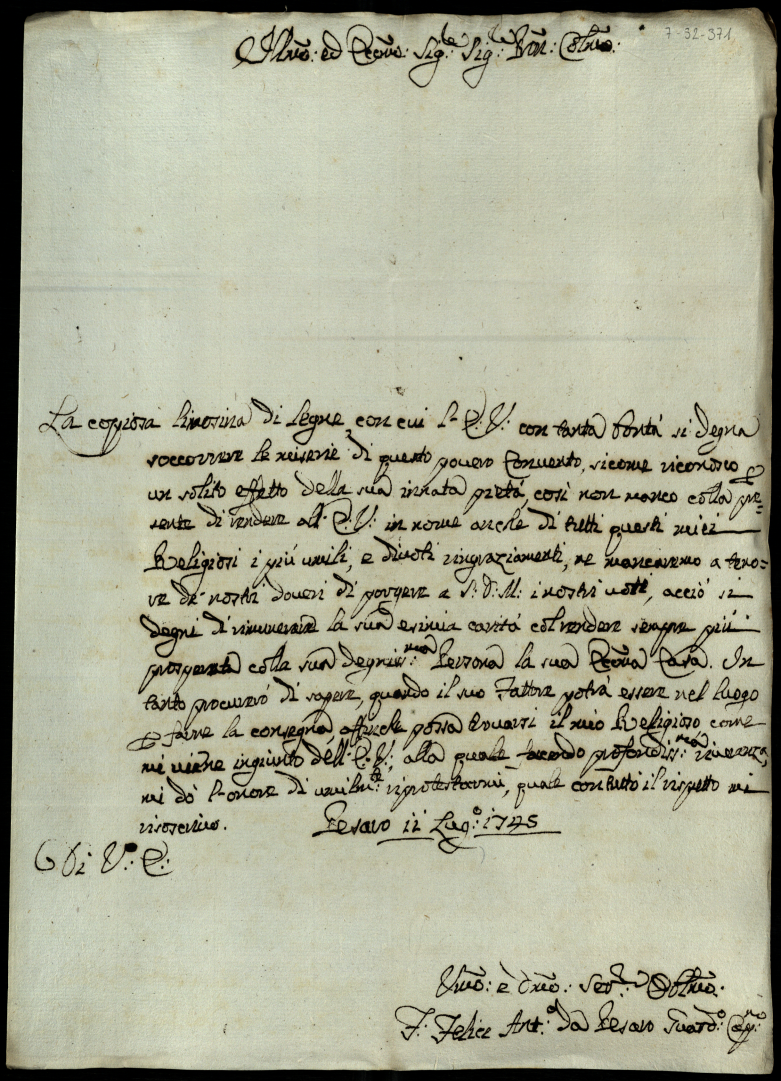 7-32-371
Illmo: ed Eccmo: Sig.re Sig.re Pron: Colmo:
La coppiosa limosina di legne, con cui l'E. V. con tanta bontá si degna
soccorrere le miserie di questo povero Convento, sicome riconosco p
un solito effetto della sua innata pietá, cosi non manco colla pre=
sente di rendere all'E. V. in nome anche di tutti questi miei
Religiosi i piú umili, e divoti ringraziamenti, ne mancaremo a teno=
re de nostri doveri di porgere a S. D. M. i nostri voti, acció si
degni di rimunerare la sua esimia caritá col rendere sempre piú
prosperata colla sua degniss:ma Persona la sua Eccma Casa. In
tanto procureró di sapere, quando il suo Fattore potrá essere nel luogo
p farne la consegna, affinche possa trovarsi il mio Religioso come
mi viene ingiunto dell'E. V., alla quale facendo profondiss:ma riverenza,
mi dó l'onore di umilm.te riprotestarmi, quale con tutto il rispetto mi
rioscrivo.
Pesaro 11 Lug.o 1745
Di V.a E:
Umo: è Dmo: Ser.re Oblmo.
F. Felice Ant.o da Pesaro Guard.o Capno